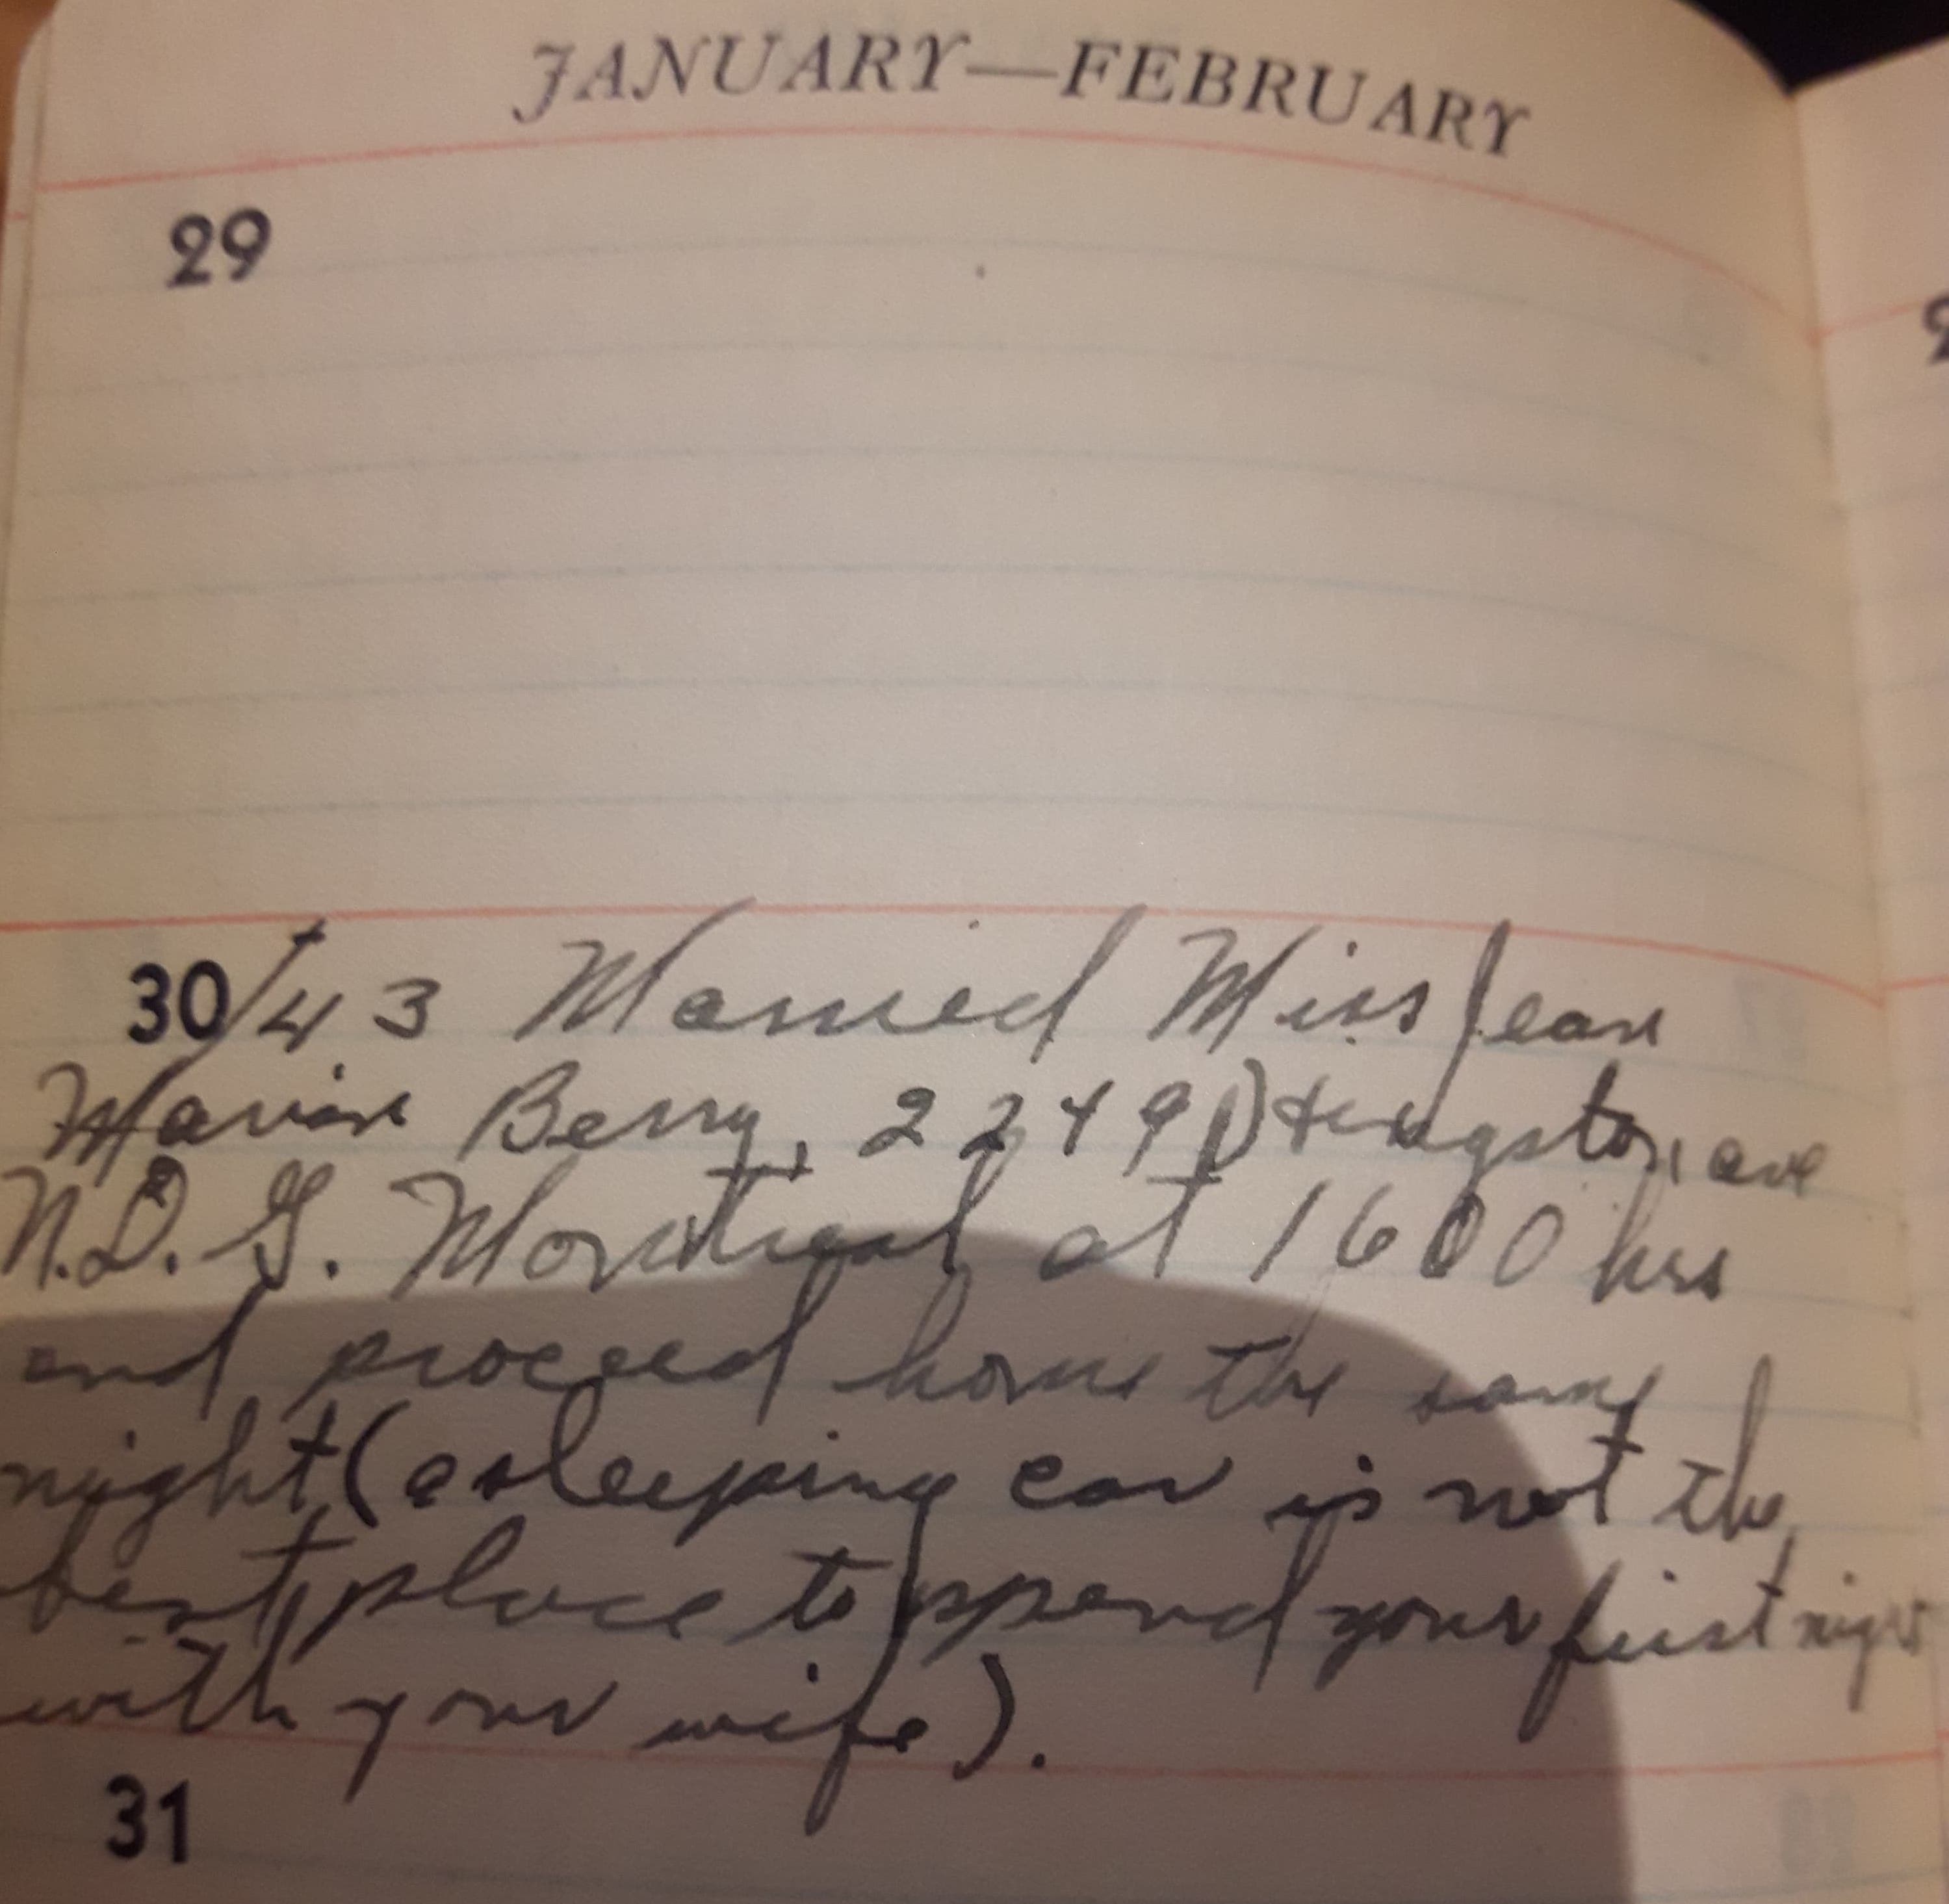 JANUARY—FEBRUARY
29
30/43 Married Miss Jean
Marion Berry, 2249 ave
N.D.G. Montreal at 1600 hrs
and proceed home the same
night (a sleeping car is not the
best place to spend your first night
with your wife).
31